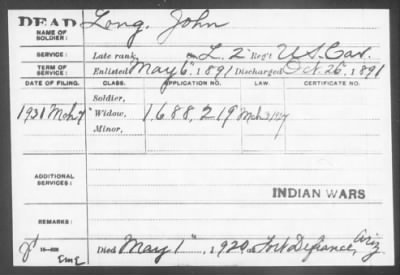 DEAD Long, John
NAME OF SOLDIER:
SERVICE: Late rank, L, 2" Reg't U.S. Cav.
TERM OF SERVICE: Enlisted May 6", 1891 Discharged Oct. 26, 1891
DATE OF FILING. CLASS. APPLICATION NO. LAW. CERTIFICATE NO.
Soldier,
1931 Mch 7" Widow, 1.688,219 Mch 3 1927
Minor,
ADDITIONAL SERVICES:
INDIAN WARS
REMARKS:
Died May 1", 1920 at Fort Defiance, Ariz
EmE